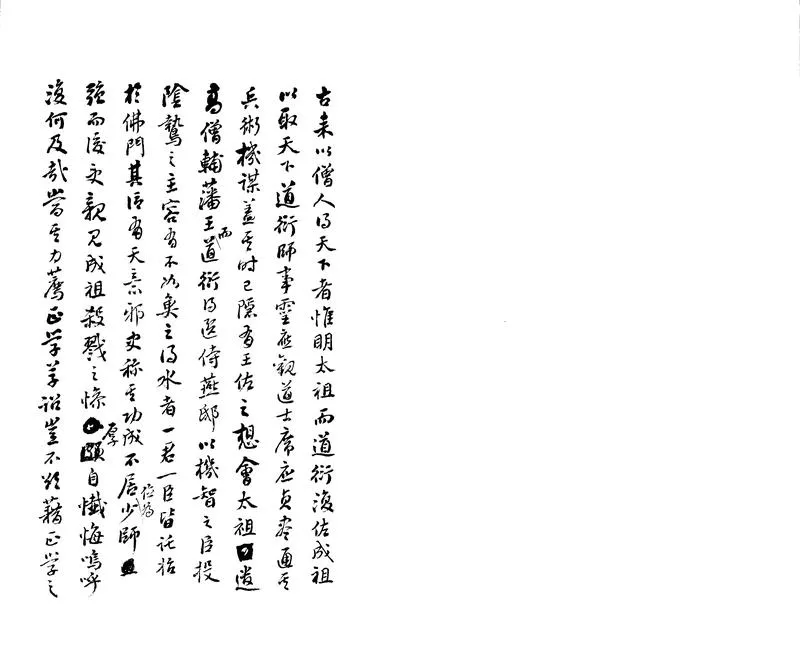 古来以僧人得天下者惟明太祖而道衍復佐成祖
以取天下道衍師事靈應觀道士席應貞盡通其
兵術機謀蓋其時已隱有王佐之想會太祖選
高僧輔藩王而道衍得選侍燕邸以機智之臣投
陰鷙之主容有不如魚之得水者一君一臣皆託始
於佛門其信有天意邪史称其功成不居僅為少師
而後史親見成祖殺戮之慘厚自懺悔嗚呼
復何及哉當其力薦正学草詔豈不欲藉正学之